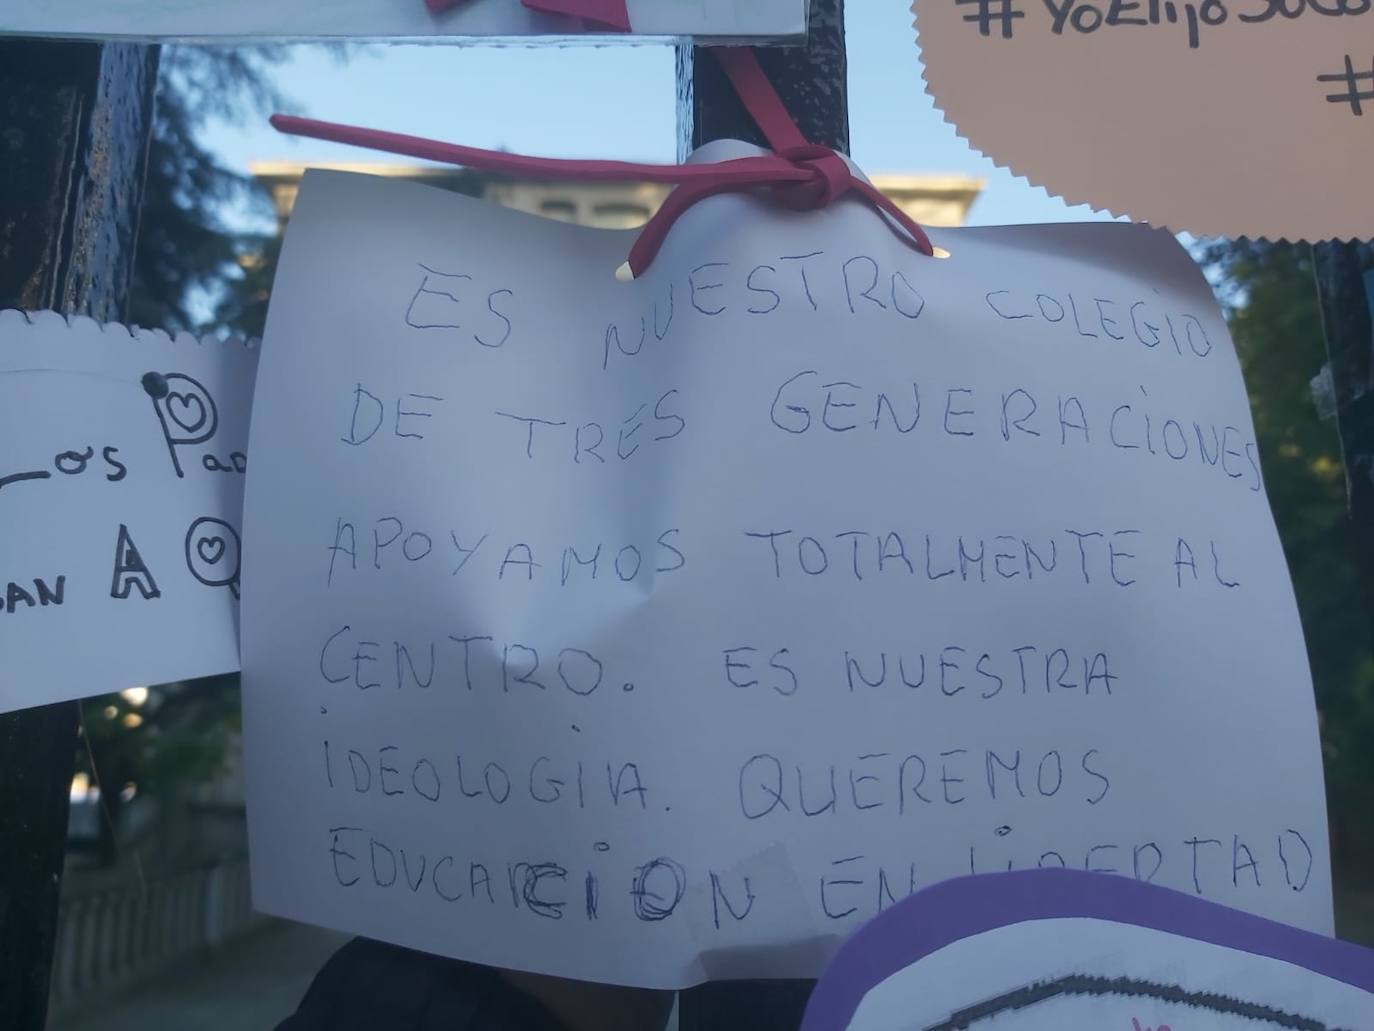 #YoElijo
#
ES NUESTRO COLEGIO
DE TRES GENERACIONES
APOYAMOS TOTALMENTE AL
CENTRO. ES NUESTRA
IDEOLOGIA. QUEREMOS
EDUCACION EN LIBERTAD
Los
A